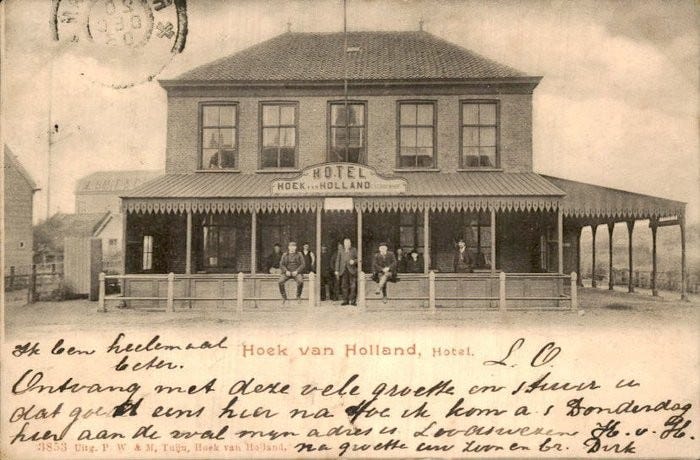 HOTEL
HOEK VAN HOLLAND
Hoek van Holland, Hotel.
Ik ben heelemaal
beter.
L O
Ontvang met deze vele groette en stuur u
dat goed eens hier na toe ik kom a s Donderdag
hier aan de wal mijn adres is Loodswezen H. v. H.
na groette uw zoon en br. Dirk
3853 Uitg. P. W & M, Tuijn, Hoek van Holland.